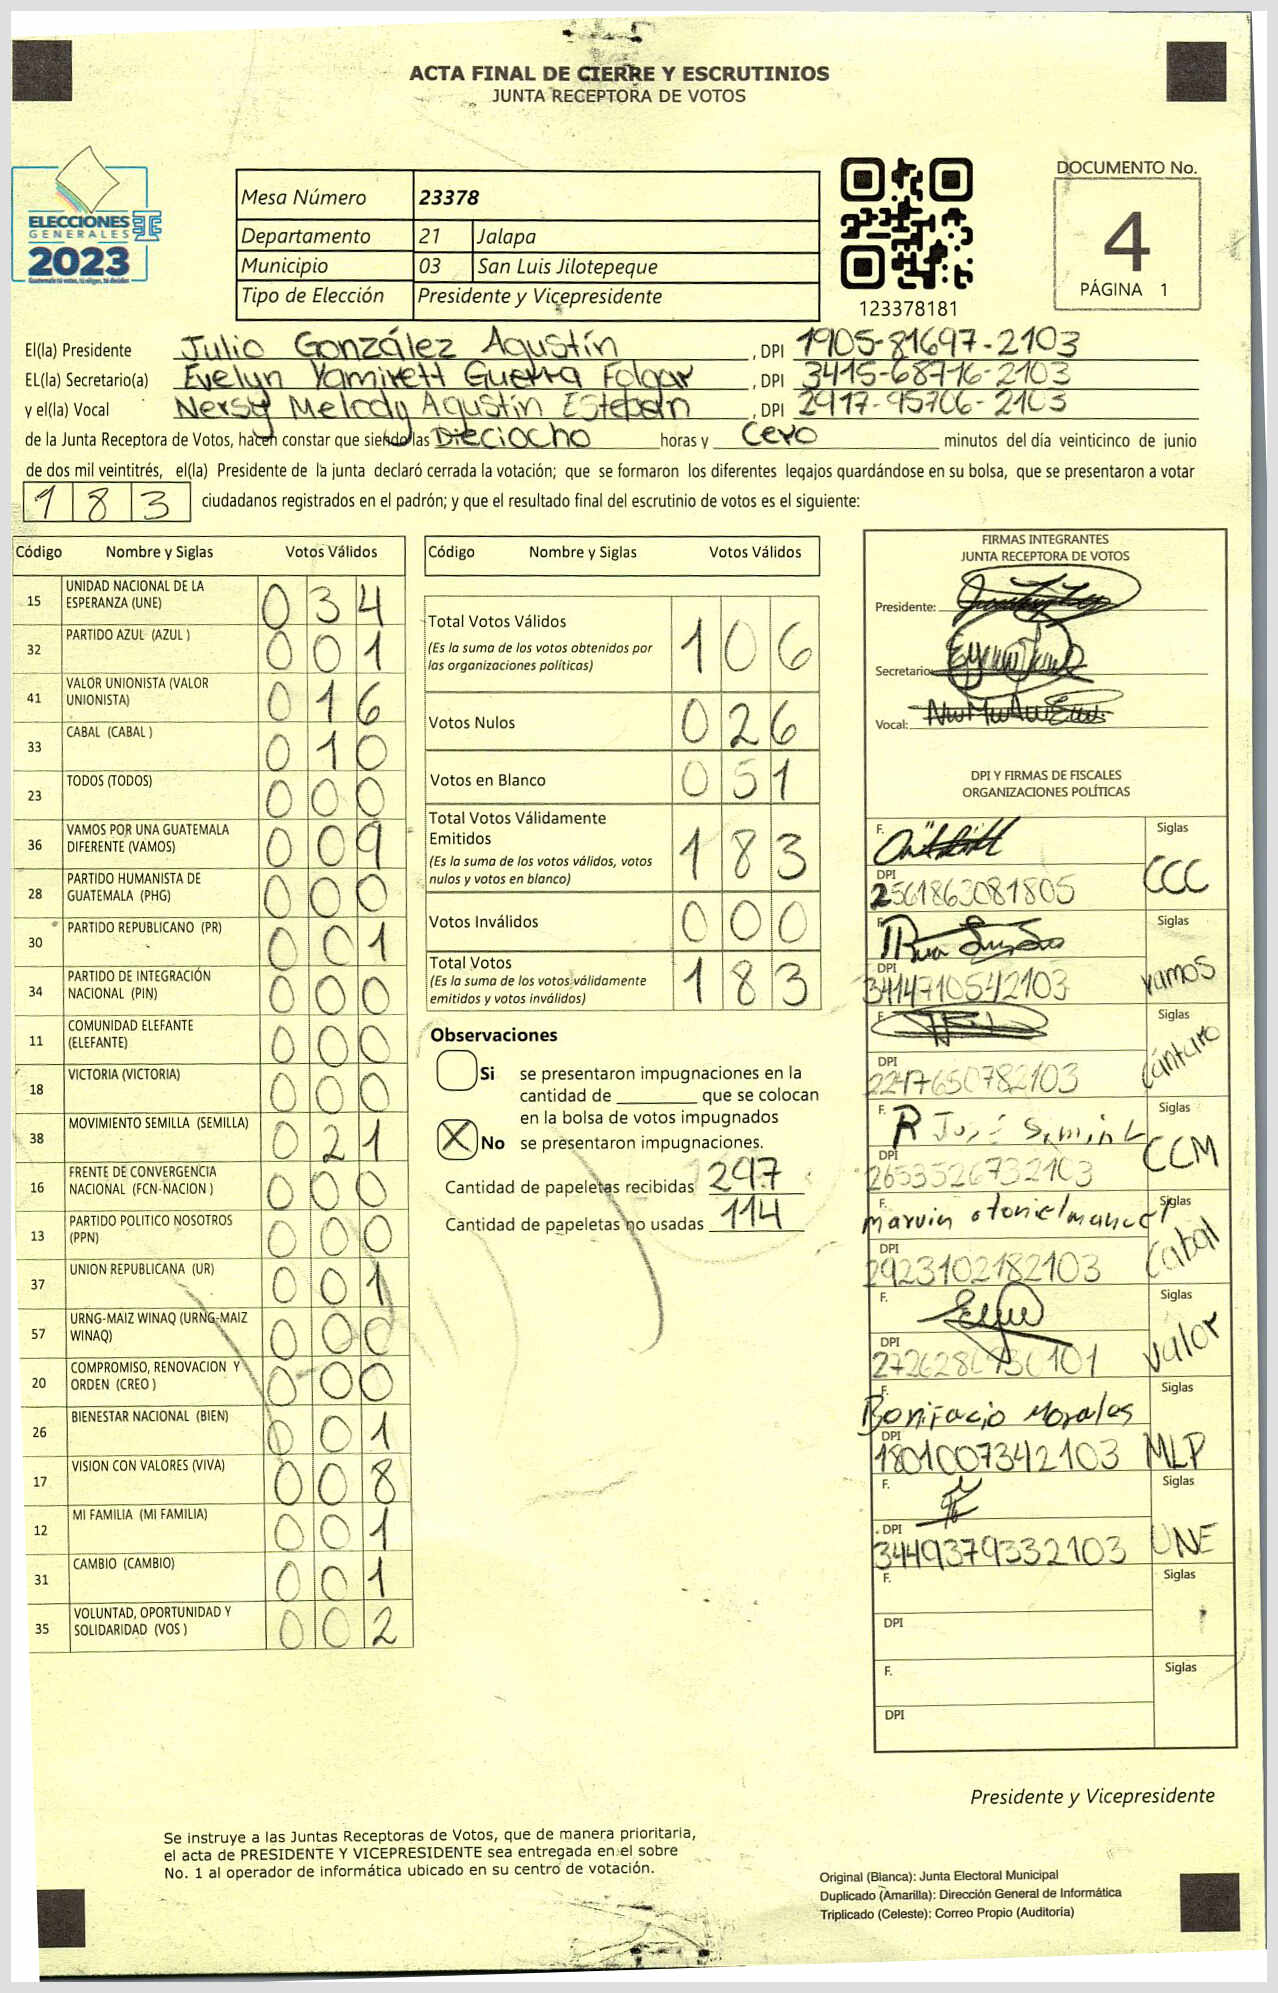 ACTA FINAL DE CIERRE Y ESCRUTINIOS
JUNTA RECEPTORA DE VOTOS
ELECCIONES
GENERALES
2023
Mesa Número 23378
Departamento 21 Jalapa
Municipio 03 San Luis Jilotepeque
Tipo de Elección Presidente y Vicepresidente
123378181
DOCUMENTO No.
4
PÁGINA 1
El(la) Presidente Julio González Agustín, DPI 1905-81697-2103
EL(la) Secretario(a) Evelyn Yamirett Guerra Folgar, DPI 3415-68716-2103
y el(la) Vocal Nersy Melody Agustín Esteban, DPI 2917-95706-2103
de la Junta Receptora de Votos, hacen constar que siendo las Dieciocho horas y Cero minutos del día veinticinco de junio
de dos mil veintitrés, el(la) Presidente de la junta declaró cerrada la votación; que se formaron los diferentes legajos guardándose en su bolsa, que se presentaron a votar
183 ciudadanos registrados en el padrón; y que el resultado final del escrutinio de votos es el siguiente:
Código Nombre y Siglas Votos Válidos
15 UNIDAD NACIONAL DE LA ESPERANZA (UNE) 034
32 PARTIDO AZUL (AZUL ) 001
41 VALOR UNIONISTA (VALOR UNIONISTA) 016
33 CABAL (CABAL ) 010
23 TODOS (TODOS) 000
36 VAMOS POR UNA GUATEMALA DIFERENTE (VAMOS) 009
28 PARTIDO HUMANISTA DE GUATEMALA (PHG) 000
30 PARTIDO REPUBLICANO (PR) 001
34 PARTIDO DE INTEGRACIÓN NACIONAL (PIN) 000
11 COMUNIDAD ELEFANTE (ELEFANTE) 000
18 VICTORIA (VICTORIA) 000
38 MOVIMIENTO SEMILLA (SEMILLA) 021
16 FRENTE DE CONVERGENCIA NACIONAL (FCN-NACION ) 000
13 PARTIDO POLITICO NOSOTROS (PPN) 000
37 UNION REPUBLICANA (UR) 001
57 URNG-MAIZ WINAQ (URNG-MAIZ WINAQ) 000
20 COMPROMISO, RENOVACION Y ORDEN (CREO ) 000
26 BIENESTAR NACIONAL (BIEN) 001
17 VISION CON VALORES (VIVA) 008
12 MI FAMILIA (MI FAMILIA) 001
31 CAMBIO (CAMBIO) 001
35 VOLUNTAD, OPORTUNIDAD Y SOLIDARIDAD (VOS ) 002
Código Nombre y Siglas Votos Válidos
Total Votos Válidos 106
(Es la suma de los votos obtenidos por
las organizaciones políticas)
Votos Nulos 026
Votos en Blanco 051
Total Votos Válidamente
Emitidos 183
(Es la suma de los votos válidos, votos
nulos y votos en blanco)
Votos Inválidos 000
Total Votos 183
(Es la suma de los votos válidamente
emitidos y votos inválidos)
Observaciones
Si se presentaron impugnaciones en la
cantidad de ________ que se colocan
en la bolsa de votos impugnados
X No se presentaron impugnaciones.
Cantidad de papeletas recibidas 297
Cantidad de papeletas no usadas 114
FIRMAS INTEGRANTES
JUNTA RECEPTORA DE VOTOS
Presidente:
Secretario:
Vocal:
DPI Y FIRMAS DE FISCALES
ORGANIZACIONES POLÍTICAS
F. Siglas
DPI 2561863081805 CCC
F. Siglas
DPI 3414710542103 vamos
F. Siglas
DPI 2217650782103 Cántaro
F. R José Siglas
DPI 2653526732103 CCM
F. marvin otoniel manuel Siglas
DPI 2923102182103 Cabal
F. Siglas
DPI valor
F. Bonifacio Morales Siglas
DPI 1801007342103 MLP
F. Siglas
DPI 3449379332103 UNE
F. Siglas
DPI
F. Siglas
DPI
Presidente y Vicepresidente
Se instruye a las Juntas Receptoras de Votos, que de manera prioritaria,
el acta de PRESIDENTE Y VICEPRESIDENTE sea entregada en el sobre
No. 1 al operador de informática ubicado en su centro de votación.
Original (Blanca): Junta Electoral Municipal
Duplicado (Amarilla): Dirección General de Informática
Triplicado (Celeste): Correo Propio (Auditoría)